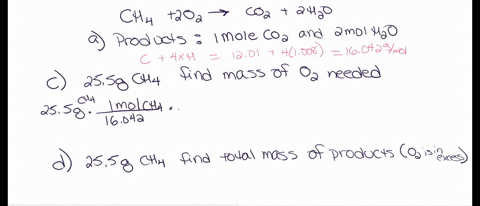 CH₄ + 2O₂ → CO₂ + 2H₂O
a) Products : 1 mole CO₂ and 2 mol H₂O
C + 4×H = 12.01 + 4(1.008) = 16.042 g/mol
c) 25.5g CH₄ find mass of O₂ needed
25.5g CH₄ · 1 mol CH₄ / 16.042 ·
d) 25.5g CH₄ find total mass of products (O₂ is in excess)